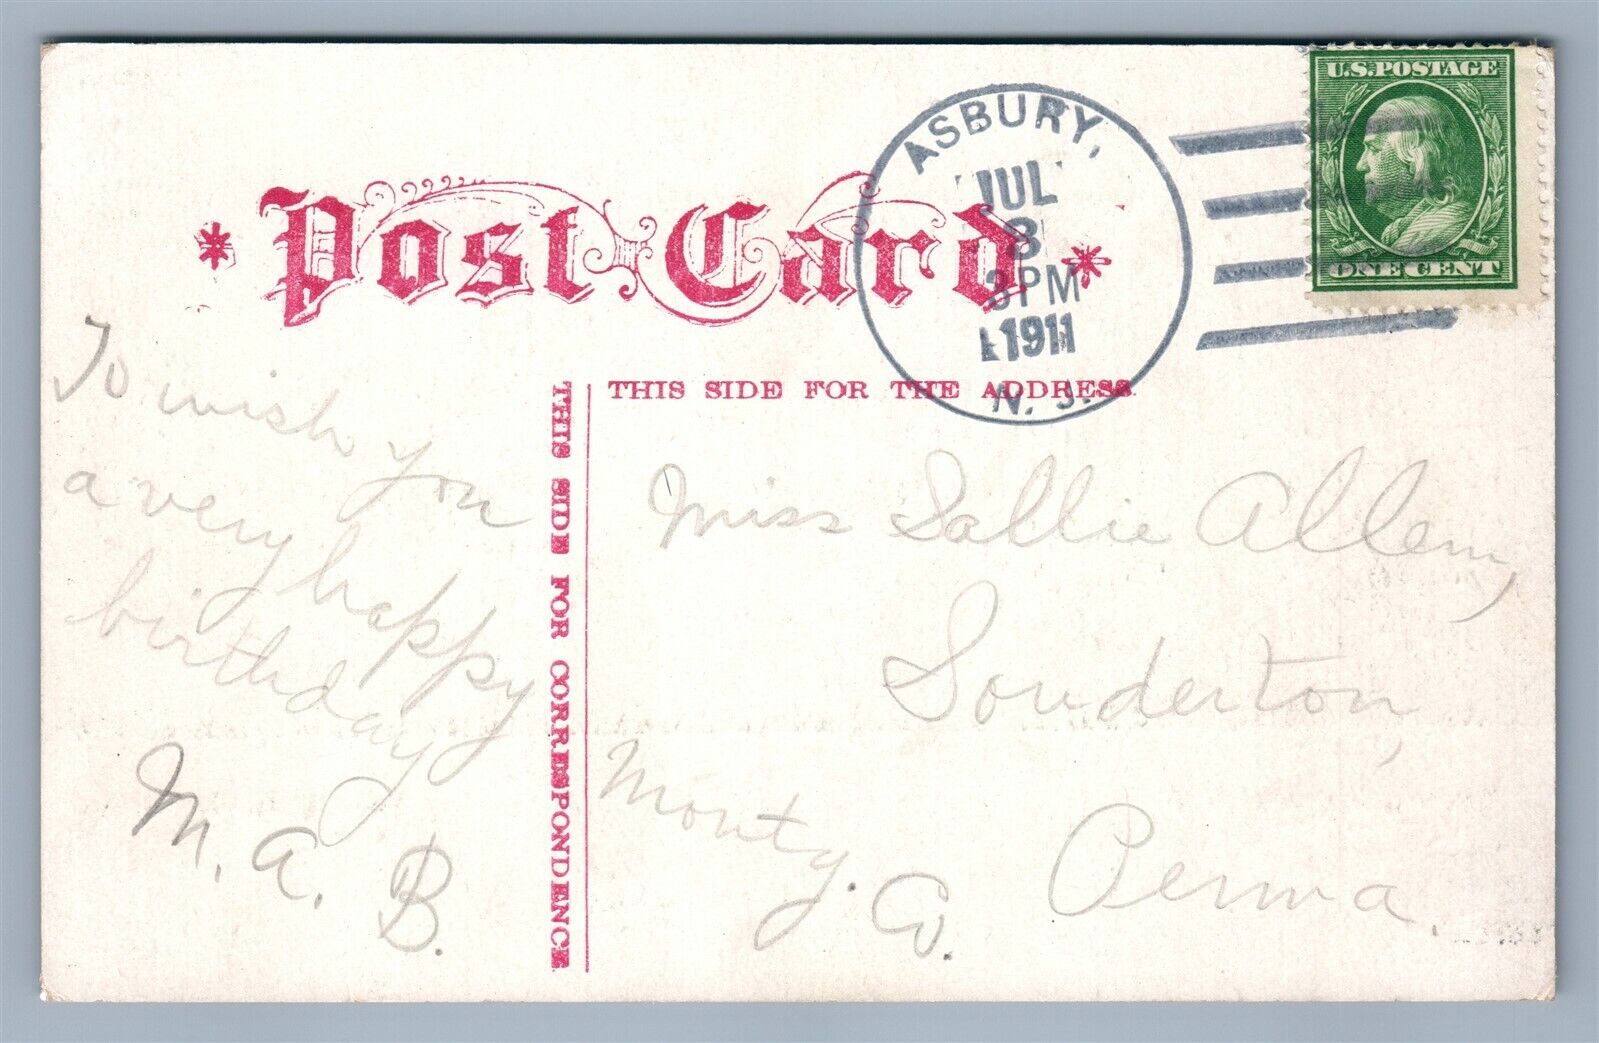 Post Card
ASBURY,
JUL
3
3PM
1911
N. J.
U.S.POSTAGE
ONE CENT
THIS SIDE FOR THE ADDRESS
THIS SIDE FOR CORRESPONDENCE
To wish you
a very happy
birthday
M. A. B.
Miss Sallie Allem,
Souderton,
Monty. Co.
Penna.